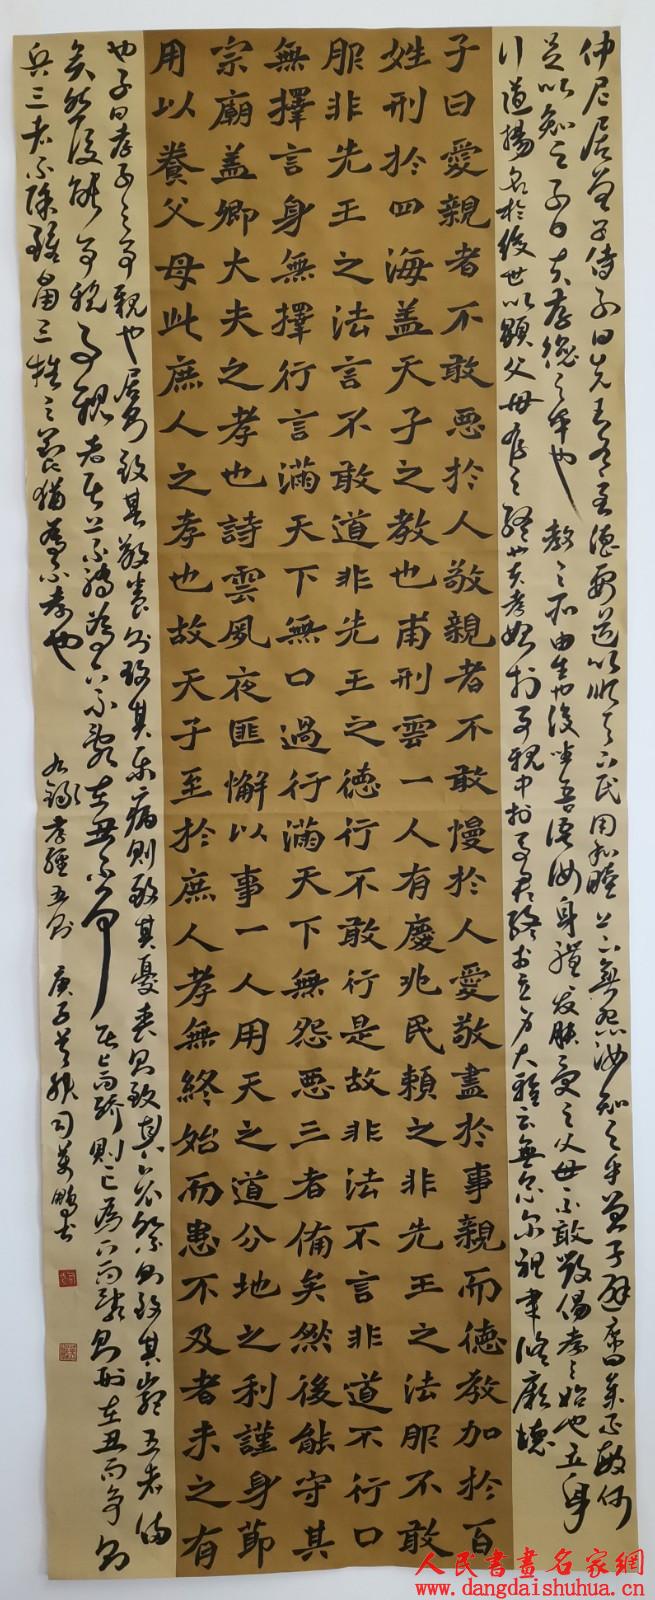 仲尼居曾子侍子曰先王有至德要道以順天下民用和睦上下無怨汝知之乎曾子避席曰參不敏何
足以知之子曰夫孝德之本也教之所由生也復坐吾語汝身體髮膚受之父母不敢毀傷孝之始也立身
行道揚名於後世以顯父母孝之終也夫孝始於事親中於事君終於立身大雅云無念爾祖聿修厥德
子曰愛親者不敢惡於人敬親者不敢慢於人愛敬盡於事親而德教加於百
姓刑於四海盖天子之教也甫刑雲一人有慶兆民賴之非先王之法服不敢
服非先王之法言不敢道非先王之德行不敢行是故非法不言非道不行口
無擇言身無擇行言滿天下無口過行滿天下無怨惡三者備矣然後能守其
宗廟盖卿大夫之孝也詩雲夙夜匪懈以事一人用天之道分地之利謹身節
用以養父母此庶人之孝也故天子至於庶人孝無終始而患不及者未之有
也子曰孝子之事親也居則致其敬養則致其樂病則致其憂喪則致其哀祭則致其嚴五者備
矣然後能事親事親者居上不驕為下不亂在丑不爭居上而驕則亡為下而亂則刑在丑而爭則
兵三者不除雖日用三牲之養猶為不孝也
錄孝經五則 庚子 司萬鵬书
人民書畫名家網
www.dangdaishuhua.cn